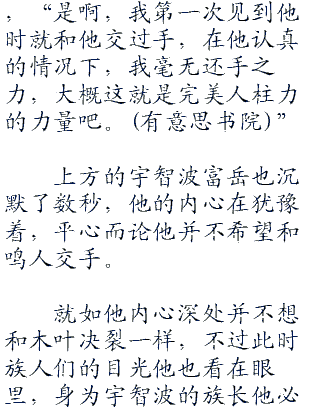 ，“是啊，我第一次见到他
时就和他交过手，在他认真
的情况下，我毫无还手之
力，大概这就是完美人柱力
的力量吧。(有意思书院)”
上方的宇智波富岳也沉
默了数秒，他的内心在犹豫
着，平心而论他并不希望和
鸣人交手。
就如他内心深处并不想
和木叶决裂一样，不过此时
族人们的目光他也看在眼
里，身为宇智波的族长他必